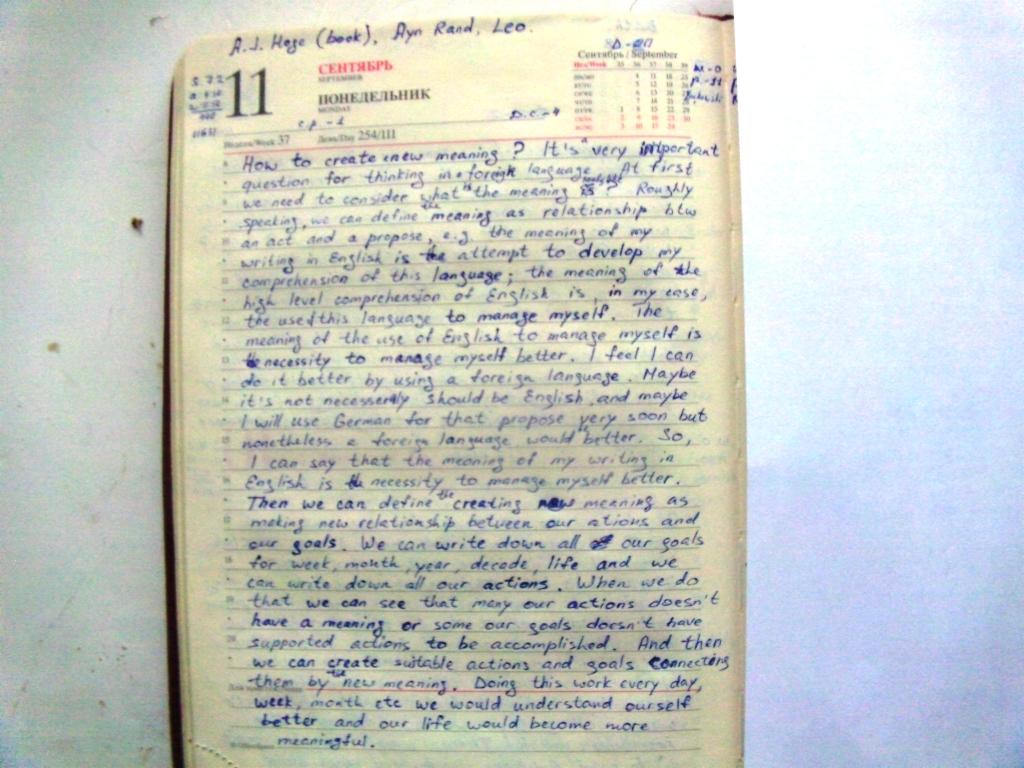 A.J. Hoge (book), Ayn Rand, Leo.
11
СЕНТЯБРЬ
SEPTEMBER
ПОНЕДЕЛЬНИК
MONDAY
Сентябрь / September
c.p. - 1
D.C. - 4
Неделя/Week 37 День/Day 254/111
How to create new meaning? It's a very important
question for thinking in a foreign language. At first
we need to consider what is the meaning? Roughly
speaking, we can define the meaning as relationship btw
an act and a propose, e.g. the meaning of my
writing in English is the attempt to develop my
comprehension of this language; the meaning of the
high level comprehension of English is, in my case,
the use of this language to manage myself. The
meaning of the use of English to manage myself is
necessity to manage myself better. I feel I can
do it better by using a foreign language. Maybe
it's not necesserely should be English, and maybe
I will use German for that propose very soon but
nonetheless a foreign language would better. So,
I can say that the meaning of my writing in
English is necessity to manage myself better.
Then we can define the creating new meaning as
making new relationship between our ations and
our goals. We can write down all our goals
for week, month, year, decade, life and we
can write down all our actions. When we do
that we can see that many our actions doesn't
have a meaning or some our goals doesn't have
supported actions to be accomplished. And then
we can create suitable actions and goals connecting
them by the new meaning. Doing this work every day,
week, month etc we would understand ourself
better and our life would become more
meaningful.